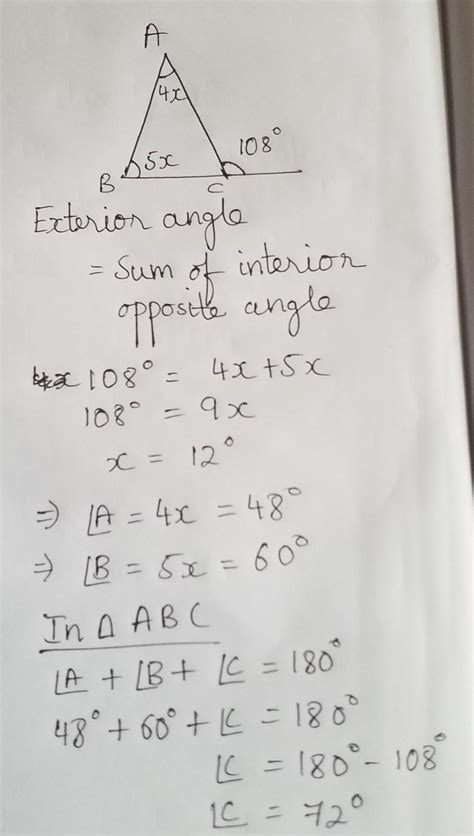 A
4x
108°
5x
B
C
Exterior angle
= Sum of interior
opposite angle
108° = 4x+5x
108° = 9x
x = 12°
⇒ ∠A = 4x = 48°
⇒ ∠B = 5x = 60°
In Δ ABC
∠A + ∠B + ∠C = 180°
48° + 60° + ∠C = 180°
∠C = 180° - 108°
∠C = 72°